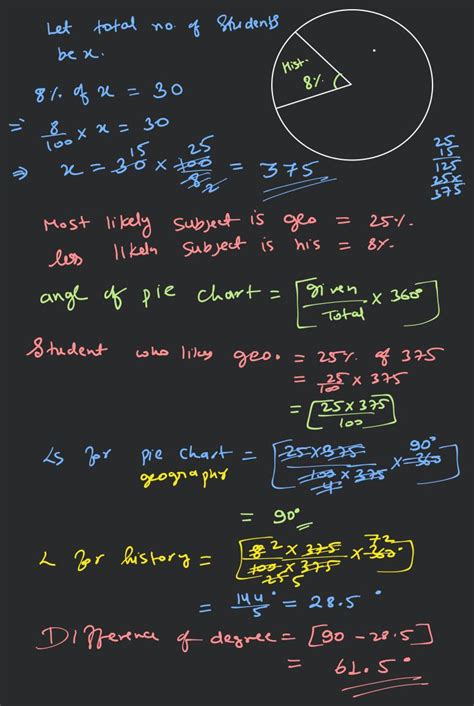 Let total no. of Students
be x.
Hist.
8%
8% of x = 30
⇒ 8/100 × x = 30
⇒ x = 30 15 × 100 25 / 8 2 = 375
25
15
125
25x
375
Most likely subject is geo = 25%.
less likeln subject is his = 8%.
angl of pie chart = [given/Total × 360°]
Student who likes geo. = 25% of 375
= 25/100 × 375
= [25×375/100]
∠s for pie chart = [25×375/100×375 4 × 360 90°]
geography
= 90°
∠ for history = [8 2 × 375/100 × 375 25 5 × 360° 72]
= 144/5 = 28.5°
Difference of degree = [90 - 28.5]
= 61.5°